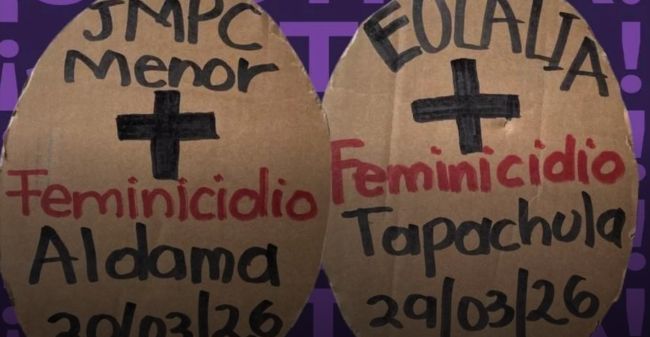 JMPC
Menor
Feminicidio
Aldama
20/03/26
EULALIA
Feminicidio
Tapachula
29/03/26